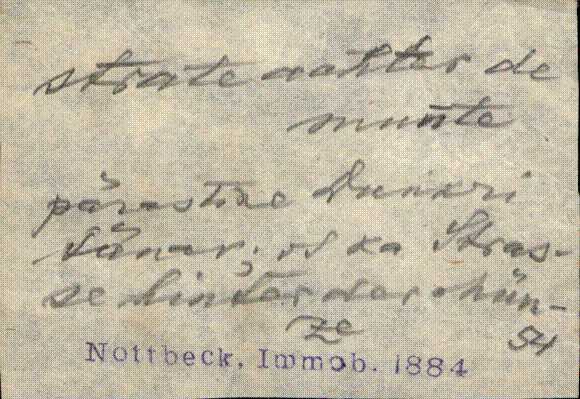 strate achter de
munte
pärastine Dunkri
tänav; od ka Stras-
se hinter der Mün-
ze
54
Nottbeck, Immob. 1884